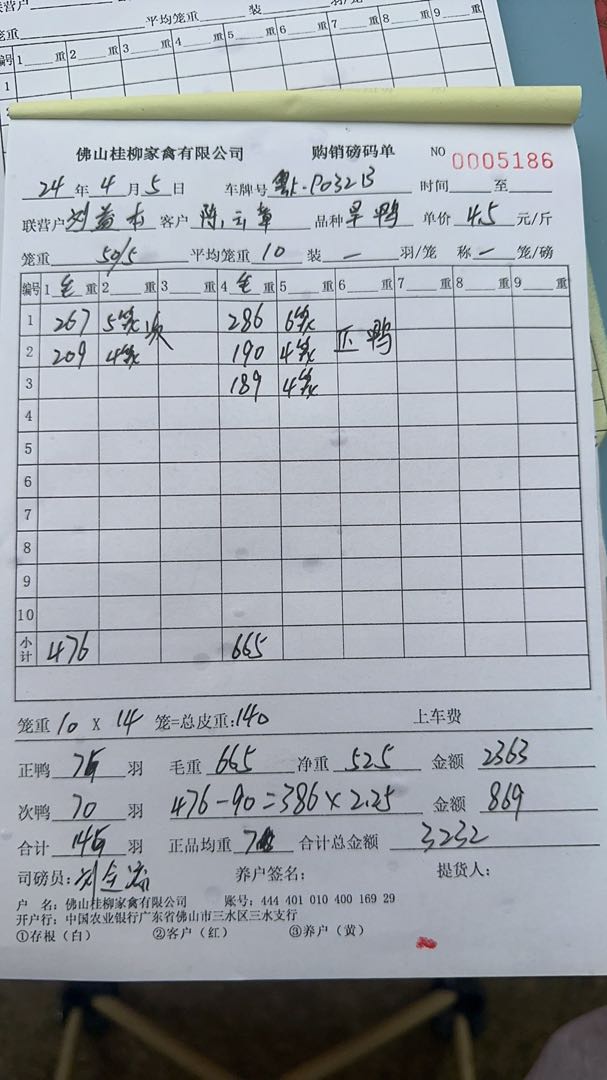 联营户
笼重 平均笼重 装 羽/笼
编号 1 重 2 重 3 重 4 重 5 重 6 重 7 重 8 重 9 重
1
佛山桂柳家禽有限公司 购销磅码单 NO 0005186
24 年 4 月 5 日 车牌号 时间 至
联营户 客户 陈云章 品种 旱鸭 单价 4.5 元/斤
笼重 50/5 平均笼重 10 装 一 羽/笼 称 一 笼/磅
编号 1 毛 重 2 重 3 重 4 毛 重 5 重 6 重 7 重 8 重 9 重
1 267 5笼 次 286 6笼 正鸭
2 209 4笼 190 4笼
3 189 4笼
4
5
6
7
8
9
10
小计 476 665
笼重 10 X 14 笼=总皮重: 140 上车费
正鸭 羽 毛重 665 净重 525 金额 2363
次鸭 70 羽 476-90=386×2.25 金额 869
合计 羽 正品均重 合计总金额 3232
司磅员: 养户签名: 提货人:
户 名: 佛山桂柳家禽有限公司 账号: 444 401 010 400 169 29
开户行: 中国农业银行广东省佛山市三水区三水支行
①存根（白） ②客户（红） ③养户（黄）